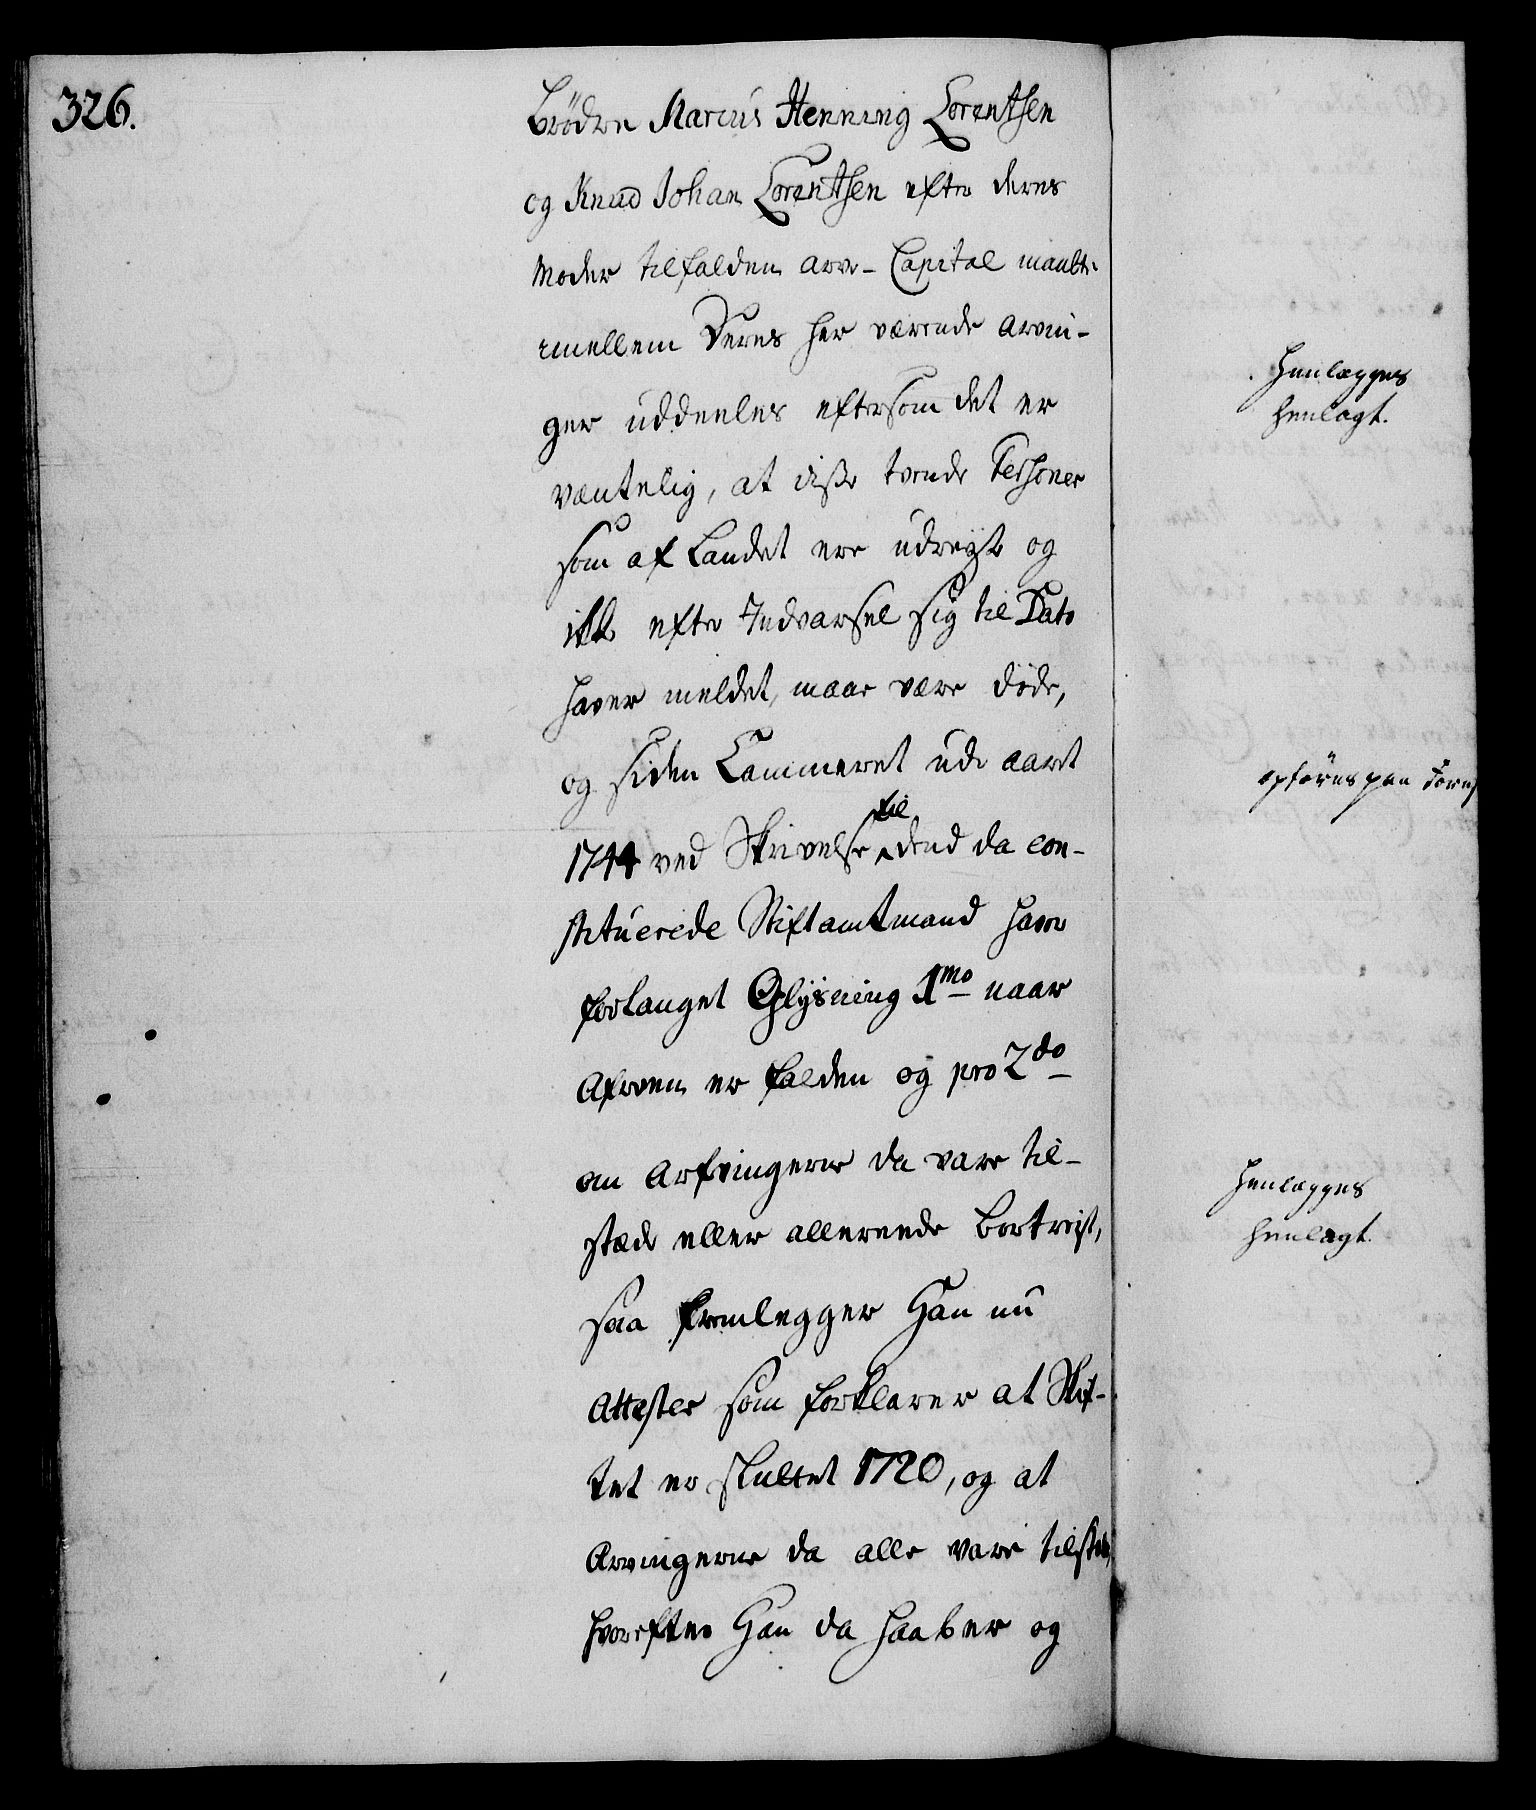 326.
Brödre Marcus Henning Lorentsen
og Knud Johan Lorentsen efter deres
Moder tilfalden Arve-Capital maatte
imellem Deres her værende Arvin-
ger uddeeles eftersom det er
væntelig, at disse tvende Persohner
som af Landet ere udreyst og
ikke efter Indvarsel sig til Dato
haver meldet, maae være döde,
og siden Cammeret udi aaret
1744 ved Skrivelse til dend da con-
stituerede Stiftamtmand have
forlanget Oplÿsning 1mo naar
Afrven er falden og pro 2do
om Arfvingerne da vare til-
stæde eller allereede bortreist,
saa fremlegger Han nu
Attester som forklarer at Skif-
tet er sluttet 1720, og at
Arvingerne da alle vare tilstæde,
hvorefter Han da haaber og
henlægges
henlagt.
opföres paa Fore
henlægges
henlagt.